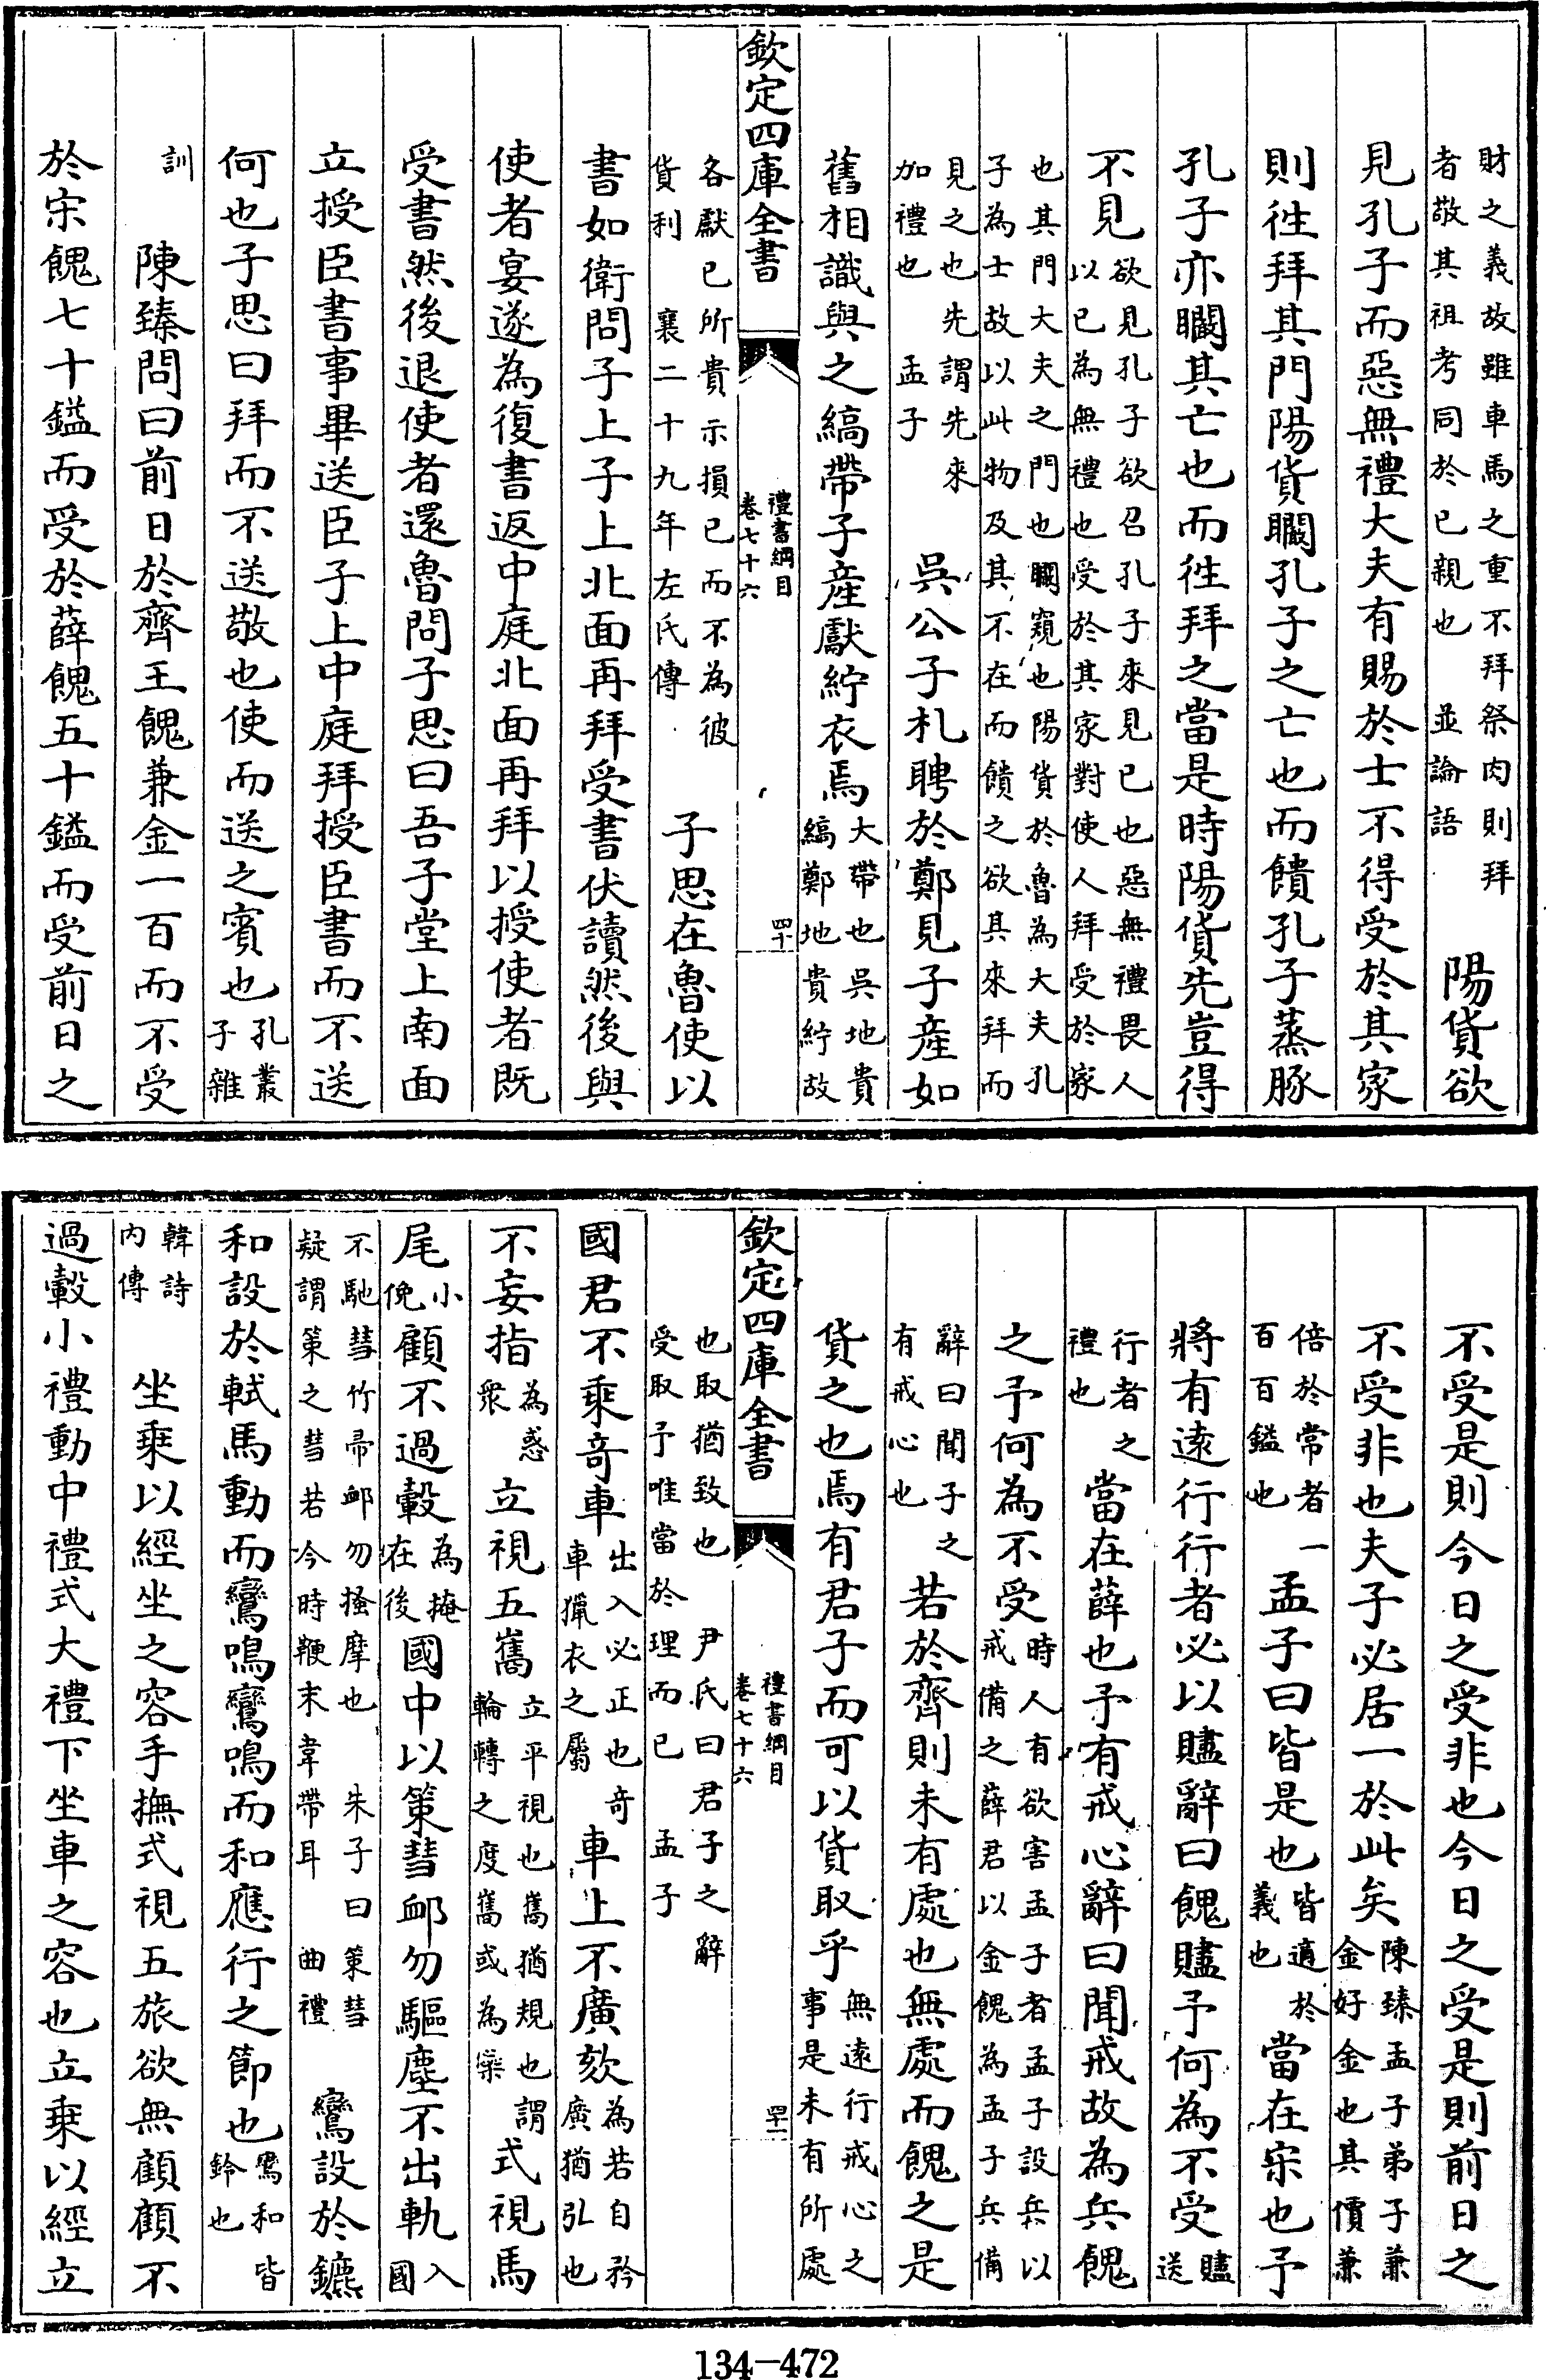 財之義故雖車馬之重不拜祭肉則拜者敬其祖考同於已親也　並論語　陽貨欲
見孔子而惡無禮大夫有賜於士不得受於其家
則徃拜其門陽貨矙孔子之亡也而饋孔子蒸豚
孔子亦矙其亡也而徃拜之當是時陽貨先豈得
不見欲見孔子欲召孔子來見已也惡無禮畏人以已為無禮也受於其家對使人拜受於家
也其門大夫之門也矙窺也陽貨於魯為大夫孔子為士故以此物及其不在而饋之欲其來拜而
見之也先謂先來加禮也　孟子　吳公子札聘於鄭見子產如
舊相識與之縞帶子產獻紵衣焉大帶也吳地貴縞鄭地貴紵故
欽定四庫全書　禮書綱目卷七十六　四十
各獻已所貴示損已而不為彼貨利　襄二十九年左氏傳　子思在魯使以
書如衛問子上子上北面再拜受書伏讀然後與
使者宴遂為復書返中庭北面再拜以授使者既
受書然後退使者還魯問子思曰吾子堂上南面
立授臣書事畢送臣子上中庭拜授臣書而不送
何也子思曰拜而不送敬也使而送之賓也孔叢子雜
訓　陳臻問曰前日於齊王餽兼金一百而不受
於宋餽七十鎰而受於薛餽五十鎰而受前日之
不受是則今日之受非也今日之受是則前日之
不受非也夫子必居一於此矣陳臻孟子弟子兼金好金也其價兼
倍於常者一百百鎰也　孟子曰皆是也皆適於義也　當在宋也予
將有遠行行者必以贐辭曰餽贐予何為不受贐送
行者之禮也　當在薛也予有戒心辭曰聞戒故為兵餽
之予何為不受時人有欲害孟子者孟子設兵以戒備之薛君以金餽為孟子兵備
辭曰聞子之有戒心也　若於齊則未有處也無處而餽之是
貨之也焉有君子而可以貨取乎無遠行戒心之事是未有所處
欽定四庫全書　禮書綱目卷七十六　四十一
也取猶致也　尹氏曰君子之辭受取予唯當於理而已　孟子
國君不乘奇車出入必正也奇車獵衣之屬　車上不廣欬為若自矜廣猶弘也
不妄指為惑衆　立視五巂立平視也巂猶規也謂輪轉之度巂或為橤　式視馬
尾小俛　顧不過轂為掩在後　國中以策彗卹勿驅塵不出軌入國
不馳彗竹帚卹勿搔摩也　朱子曰策彗疑謂策之彗若今時鞭末韋帶耳　曲禮　鸞設於鑣
和設於軾馬動而鸞鳴鸞鳴而和應行之節也鸞和皆鈴也
韓詩內傳　坐乗以經坐之容手撫式視五旅欲無顧顧不
過轂小禮動中禮式大禮下坐車之容也立乗以經立
134-472